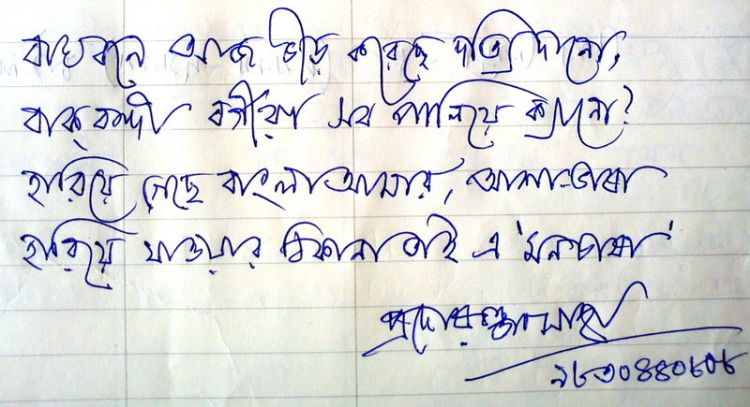 বাঘবনে আজ ভীড় করেছে দত্যিদানো,
বাক্‌বন্দী বর্গীরা সব পালিয়ে ক্যানো?
হারিয়ে গেছে বাংলা আমার, আশা-ভাষা
হারিয়ে যাওয়ার ঠিকানা তাই এ 'মনচাষা'
৯৮৩০৪৪০৮০৮